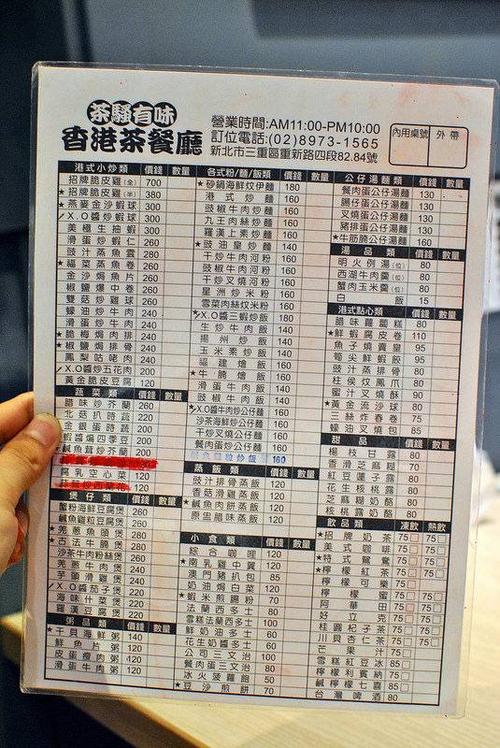 茶騷有味
香港茶餐廳
營業時間:AM11:00-PM10:00
訂位電話:(02)8973-1565
新北市三重區重新路四段82.84號
內用桌號 外帶
港式小炒類 價錢 數量
招牌脆皮雞(全) 700
★招牌脆皮雞(半) 380
★燕麥金沙蝦球 300
X.O醬炒蝦球 300
美極生抽蝦 300
滑蛋炒蝦仁 260
豉汁蒸魚雲 280
★福菜蒸魚卷 260
金沙焗魚片 260
椒鹽爆中卷 260
雙菇炒雞球 260
蠔油炒牛肉 240
滑蛋炒牛肉 240
★脆梅焗肉排 240
★椒鹽焗排骨 240
鳳梨咕咾肉 240
X.O醬炒五花肉 200
黃金脆皮豆腐 120
蔬菜類 價錢 數量
腊味炒芥蘭 260
北菇扒時蔬 220
金銀蛋時蔬 200
蝦醬焗四季豆 200
★鹹魚茸炒芥蘭 200
腐乳空心菜 120
120
煲仔類 價錢 數量
蟹粉海鮮豆腐煲 260
鹹魚雞粒豆腐煲 260
★羌蔥魚頭煲 280
★古法牛腩煲 280
沙茶牛肉粉絲煲 260
羌蔥牛肉煲 240
芋頭滑雞煲 240
X.O醬茄子煲 220
海味什菜煲 220
羅漢豆腐煲 220
粥品類 價錢 數量
★干貝海鮮粥 140
鮮魚片粥 140
皮蛋瘦肉粥 120
滑蛋牛肉粥 120
各式粉/麵/飯類 價錢 數量
★砂鍋海鮮炆伊麵 180
港式炒麵 160
豉椒牛肉炒麵 160
九王肉絲炒麵 160
羅漢上素炒麵 160
★豉油皇炒麵 140
干炒牛肉河粉 160
豉椒牛肉河粉 160
干炒叉燒河粉 160
星洲炒米粉 160
雪菜肉絲炆米粉 160
★X.O醬三蝦炒飯 180
生炒牛肉飯 140
揚州炒飯 140
玉米素炒飯 140
福建燴飯 160
★牛腩燴飯 160
滑蛋牛肉飯 140
豉椒牛肉飯 140
★X.O醬牛肉炒公仔麵 160
沙茶海鮮炒公仔麵 160
干炒叉燒公仔麵 160
餐肉蛋炒公仔麵 160
160
蒸飯類 價錢 數量
豉汁排骨蒸飯 160
香菇滑雞蒸飯 160
★鹹魚肉餅蒸飯 160
原盅腊味蒸飯 160
小食類 價錢 數量
綜合咖哩 120
★南乳雞中翼 120
澳門豬扒包 85
奶油焗白菜 120
★蝦米煎腸粉 70
法蘭西多士 80
雪糕法蘭西多士 100
鮮奶油多士 60
花生奶醬多士 60
公司三文治 100
餐肉蛋三文治 80
冰火菠蘿飽 50
★豆沙煎餅 70
公仔湯麵類 價錢 數量
餐肉蛋公仔湯麵 130
腸仔蛋公仔湯麵 130
叉燒蛋公仔湯麵 130
豬排蛋公仔湯麵 130
★牛筋腩公仔湯麵 160
湯品類 價錢 數量
明火例湯(位) 80
西湖牛肉羹(位) 80
蟹肉玉米羹(位) 80
白飯 15
港式點心類 價錢 數量
腊味蘿蔔糕 80
★鮮蝦腐皮卷 110
魚子燒賣皇 95
筍尖鮮蝦餃 95
豉汁蒸排骨 80
柱侯炆鳳爪 80
蜜汁叉燒酥 90
★黃金流沙球 80
三絲炸春卷 75
蠔油叉燒包 85
甜品 價錢 數量
楊枝甘露 80
香滑芝麻糊 70
紅豆蓮子露 80
花生核桃露 80
芝麻糊奶酪 80
核桃露奶酪 80
飲品類 凍飲 熱飲
★招牌奶茶 75 75
美式咖啡 75 75
★特式鴛鴦 75 75
★檸檬紅茶 75 75
檸檬可樂 75
檸檬蜜 75 75
阿華田 75 75
好立克 75 75
桂圓杞子茶 75 75
川貝杏仁茶 75 75
芒果汁 75
雪糕紅豆冰 85
檸檬利賓納 75
鹹檸檬七喜 85
台灣啤酒 80